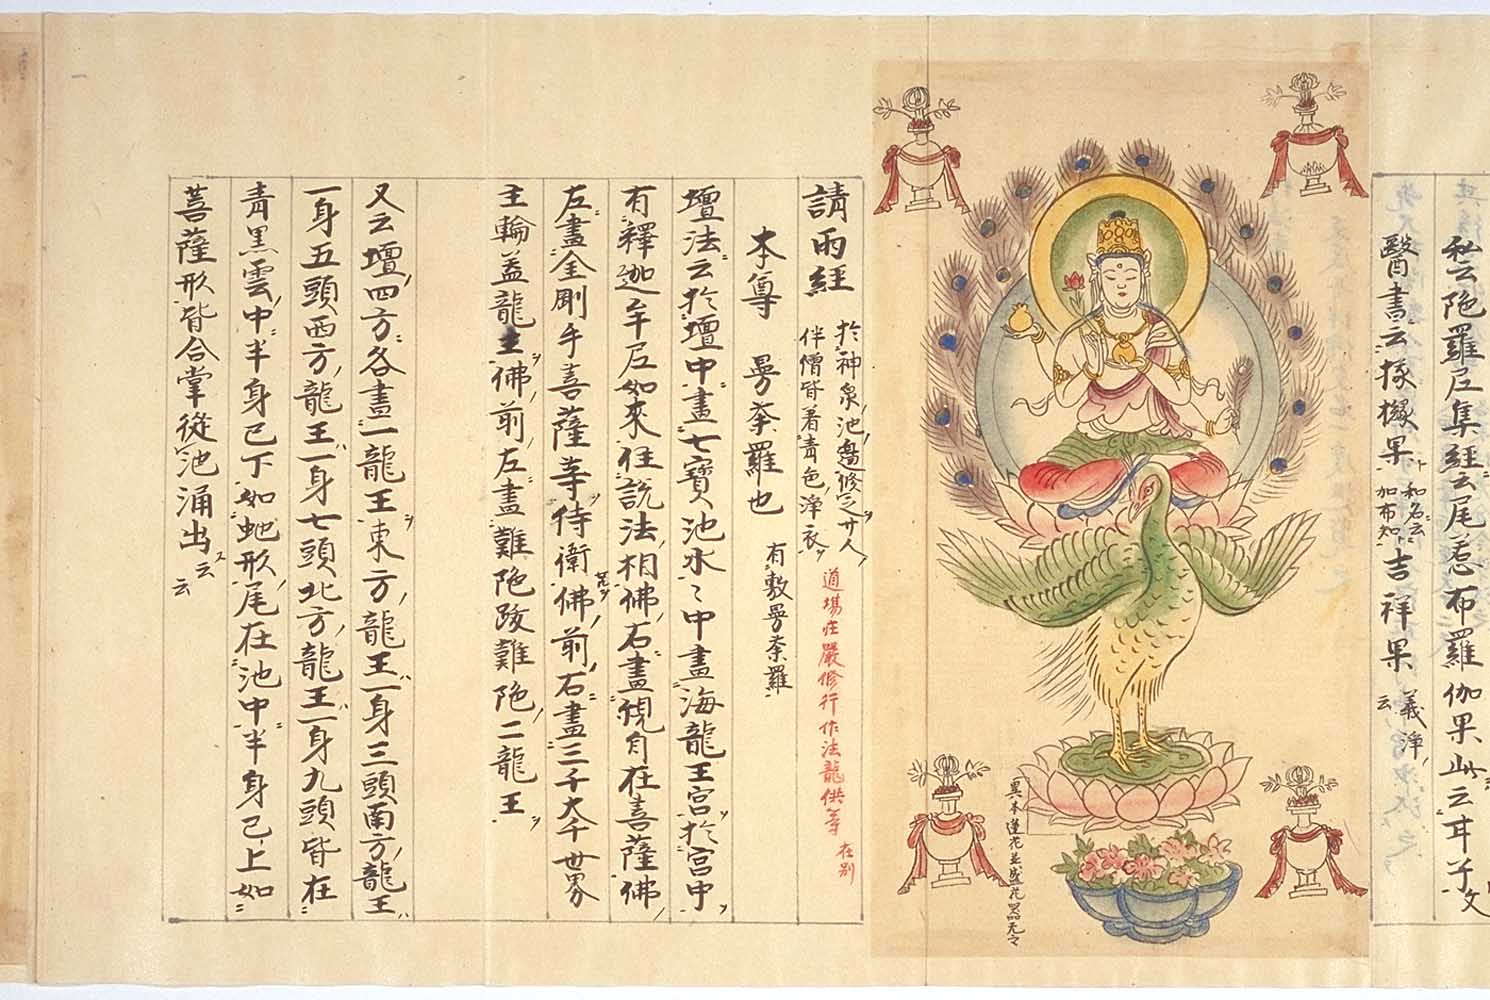 私云陀羅尼集経云尾惹布羅伽果此云耳予文
醫書云掾櫞果 和名云加布知 吉祥果 義淨云
異本蓮花並盛花器无之
請雨経 於神泉池邊修之廿人
伴僧皆着青色淨衣
道場庄嚴修行作法龍供等 在別
本尊 曼荼羅也 有敷曼荼羅
壇法云於壇中畫七寳池水々中畫海龍王宮於宮中
有釋迦牟尼如來住説法相佛右畫觀自在菩薩佛
左畫金剛手菩薩等侍衛佛前右畫三千大千世界
主輪盖龍王佛前左畫難陁跋難陁二龍王
又云壇四方各畫一龍王東方龍王一身三頭南方龍王
一身五頭西方龍王一身七頭北方龍王一身九頭皆在
青黒雲中半身已下如虵形尾在池中半身已上如
菩薩形皆合掌從池涌出云云